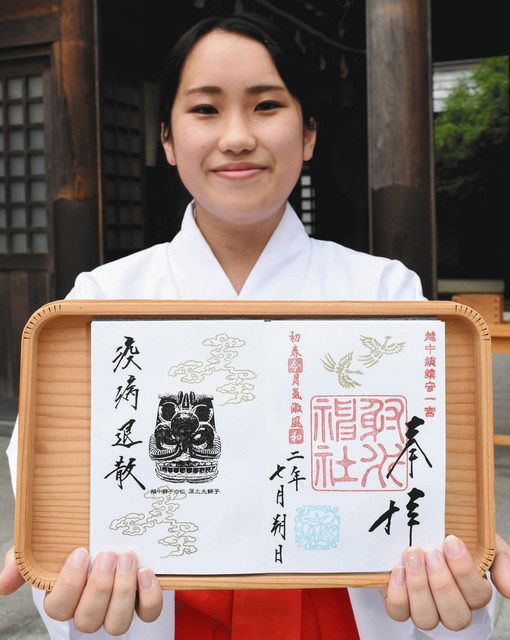 越中総鎮安一宮
奉拝
射水神社
初春令月気淑風和
二年
七月朔日
疫病退散
越中獅子の祖 源太夫獅子